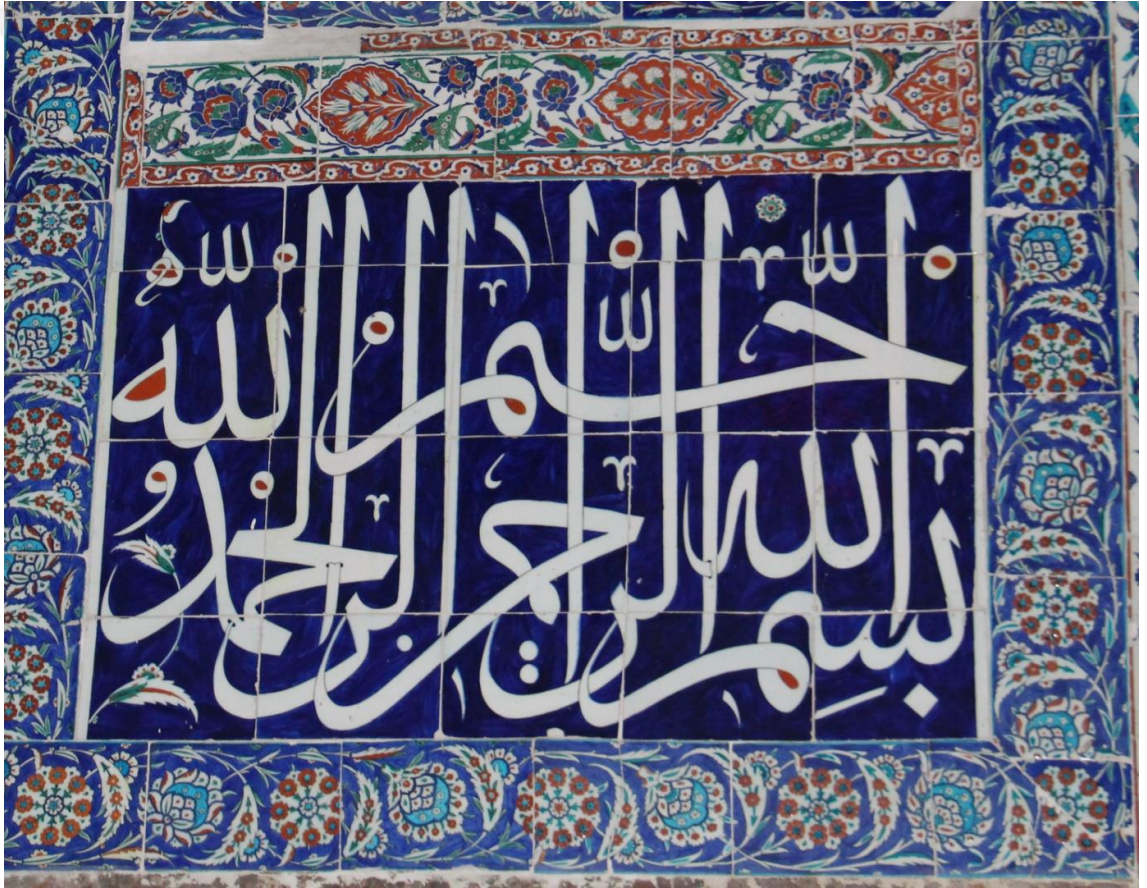 بسم الله الرحمن الرحيم الحمد لله